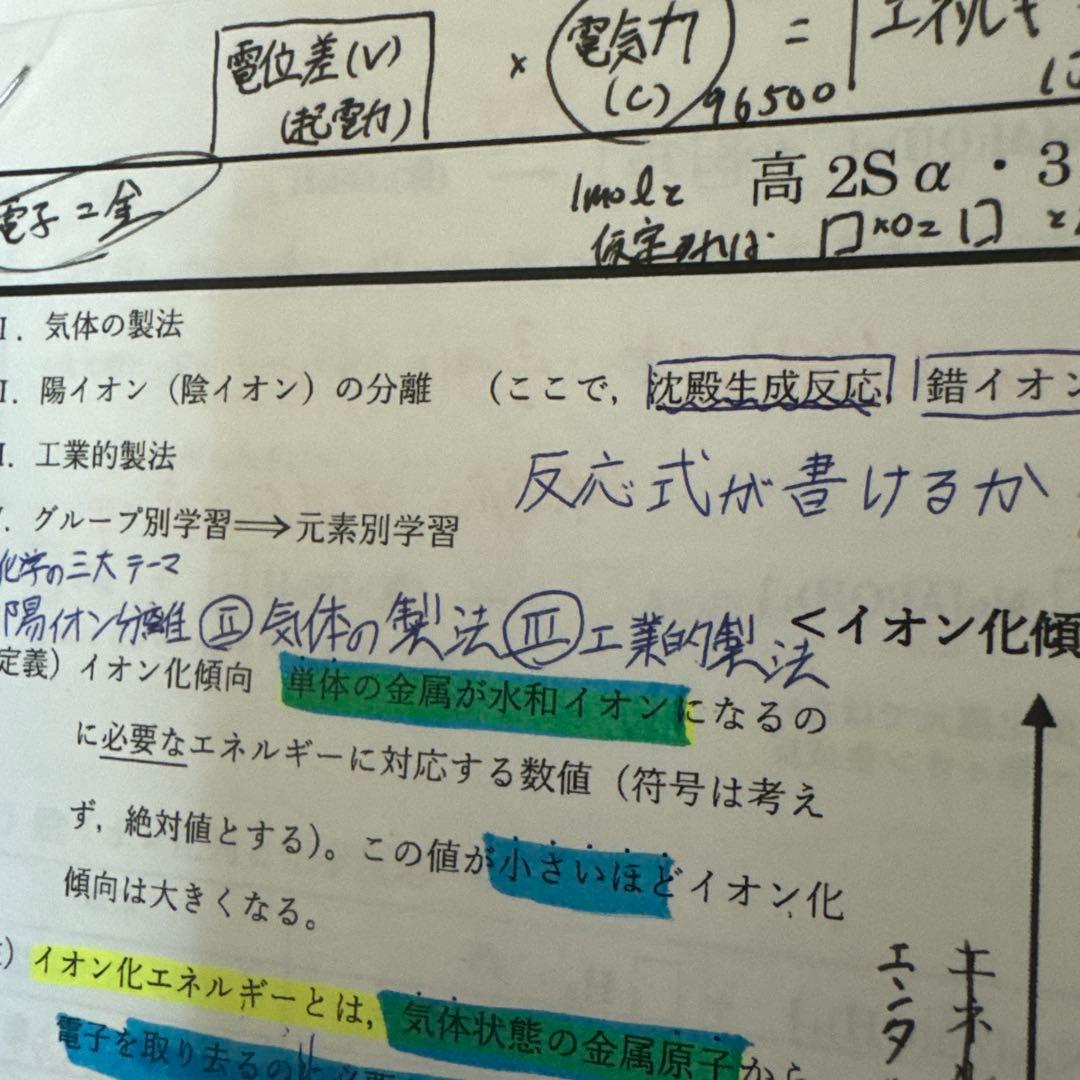 電位差(V) × 電気力 = エネルギ
(起電力) (C) 96500
電子=金 1molと 高2Sα・3
仮定すれば □×0=□
I．気体の製法
I．陽イオン（陰イオン）の分離　（ここで，沈殿生成反応，錯イオン
I．工業的製法
反応式が書けるか
．グループ別学習⟹元素別学習
化学の三大テーマ
陽イオン分離 Ⅱ 気体の製法 Ⅲ 工業的製法
＜イオン化傾
定義）イオン化傾向　単体の金属が水和イオンになるの
に必要なエネルギーに対応する数値（符号は考え
ず，絶対値とする）。この値が小さいほどイオン化
傾向は大きくなる。
）イオン化エネルギーとは，気体状態の金属原子から
電子を取り去るのに必要
エネル
エンタ